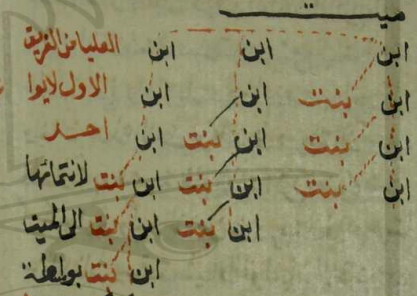 ميت
ابن ابن ابن العليا من الفريق
ابن بنت ابن ابن الاول لايوا
ابن بنت ابن بنت ابن احد
ابن بنت ابن بنت ابن بنت لانتمائها
ابن بنت ابن بنت الى الميت
ابن بنت بواسطة